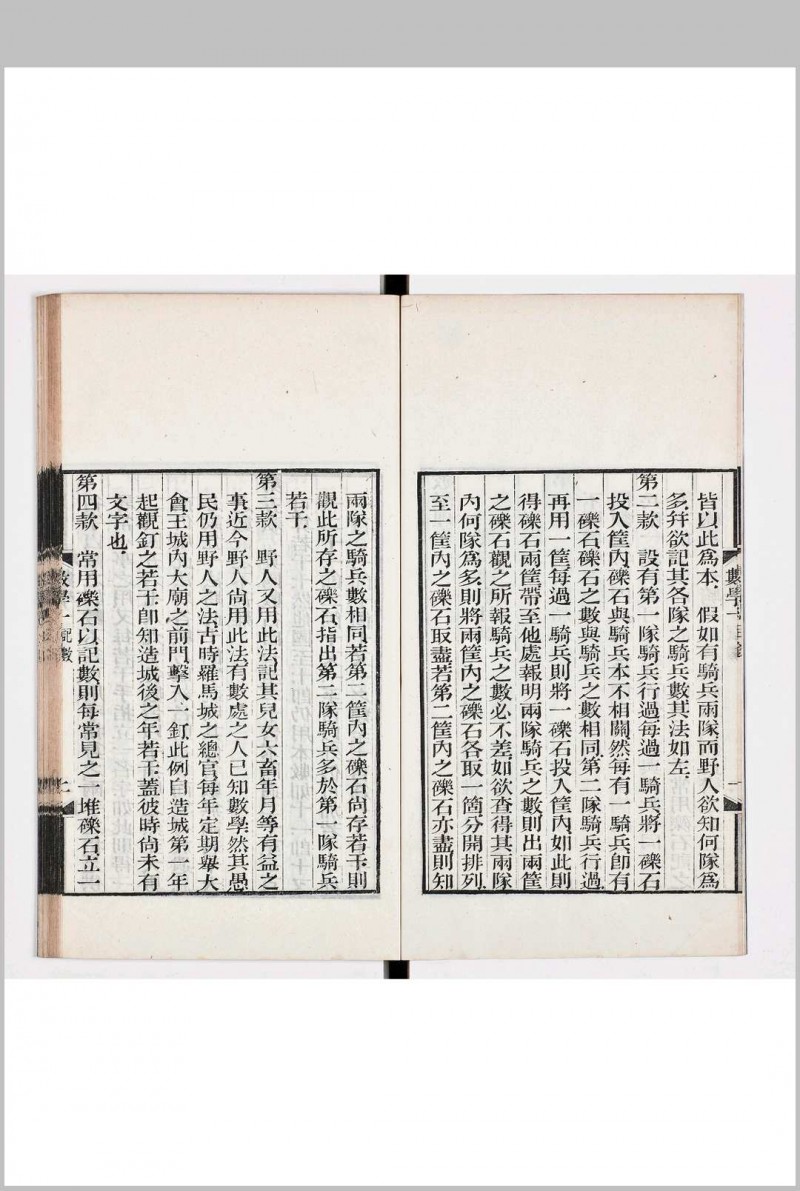 皆以此爲本、假如有騎兵兩隊而野人欲知何隊爲
多并欲記其各隊之騎兵數其法如左、
第二款 設有第一隊騎兵行過每過一騎兵將一礫石
投入筐內礫石與騎兵本不相關然每有一騎兵卽有
一礫石礫石之數與騎兵之數相同第二隊騎兵行過
再用一筐每過一騎兵則將一礫石投入筐內如此則
得礫石兩筐帶至他處報明兩隊騎兵之數則出兩筐
之礫石觀之所報騎兵之數必不差如欲查得其兩隊
內何隊爲多則將兩筐內之礫石各取一箇分開排列
至一筐內之礫石取盡若第二筐內之礫石亦盡則知
兩隊之騎兵數相同若第二筐內之礫石尙存若干則
觀此所存之礫石指出第二隊騎兵多於第一隊騎兵
若干、
第三款 野人又用此法記其兒女六畜年月等有益之
事近今野人尙用此法有數處之人已知數學然其愚
民仍用野人之法古時羅馬城之總官每年定期舉大
會王城內大廟之前門擊入一釘此例自造城第一年
起觀釘之若干卽知造城後之年若干蓋彼時尙未有
文字也、
第四款 常用礫石以記數則每常見之一堆礫石立一
數學一 記數